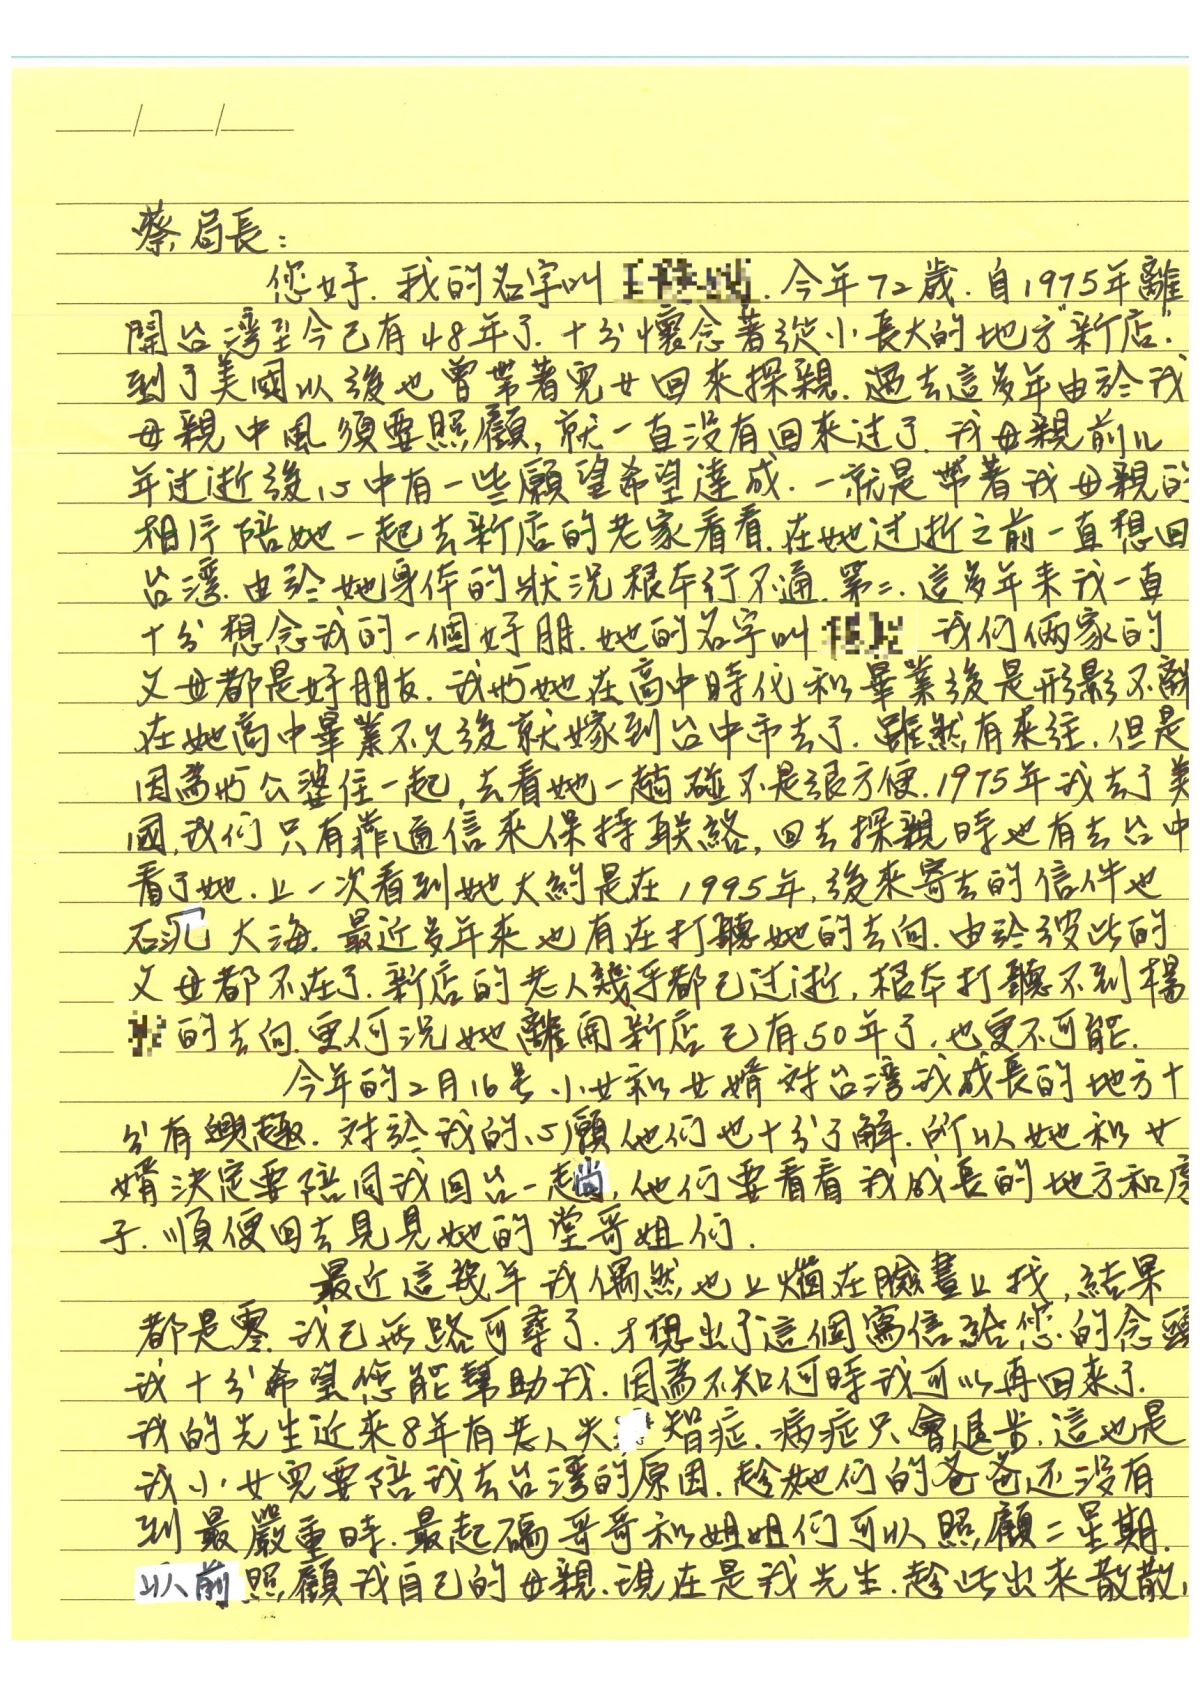 蔡局長:
您好. 我的名字叫 . 今年72歲. 自1975年離
開台湾至今已有48年了. 十分懷念著從小長大的地方"新店".
到了美國以後也曾带著兒女回來探親. 過去這多年由於我
母親中風須要照顧, 就一直沒有回來过了. 我母親前几
年过逝後心中有一些願望希望達成. 一就是帶著我母親的
相片陪她一起去新店的老家看看. 在她过逝之前一直想回
台湾. 由於她身体的狀況根本行不通. 第二. 這多年来我一直
十分想念我的一個好朋. 她的名字叫 我们倆家的
父母都是好朋友. 我而她在高中時代和畢業後是形影不離
在她高中畢業不久後就嫁到台中市去了. 雖然有來往. 但是
因為而公婆住一起, 去看她一趟碰不是很方便. 1975年我去了美
國, 我们只有靠通信來保持联絡, 回去探親時也有去台中
看了她. 上一次看到她大約是在1995年, 後來寄去的信件也
石沉大海. 最近多年來也有在打聽她的去向. 由於彼此的
父母都不在了. 新店的老人幾乎都已过逝, 根本打聽不到楊
的去向. 更何況她離開新店已有50年了, 也更不可能.
今年的2月16号小女和女婿对台湾我成長的地方十
分有興趣. 对於我的心願他们也十分了解. 所以她和女
婿決定要陪同我回台一趟, 他们要看看我成長的地方和房
子. 順便回去見見她的堂哥姐们.
最近這幾年我偶然也上網在臉書上找, 結果
都是零. 我已無路可尋了. 才想出了這個寫信給您的念頭
我十分希望您能幫助我. 因為不知何時我可以再回來了.
我的先生近來8年有老人失智症. 病症只會退步. 這也是
我小女兒要陪我去台湾的原因. 趁她们的爸爸还沒有
到最嚴重時. 最起碼哥哥和姐姐们可以照顧二星期.
以前照顧我自己的母親. 現在是我先生. 趁此出來散散